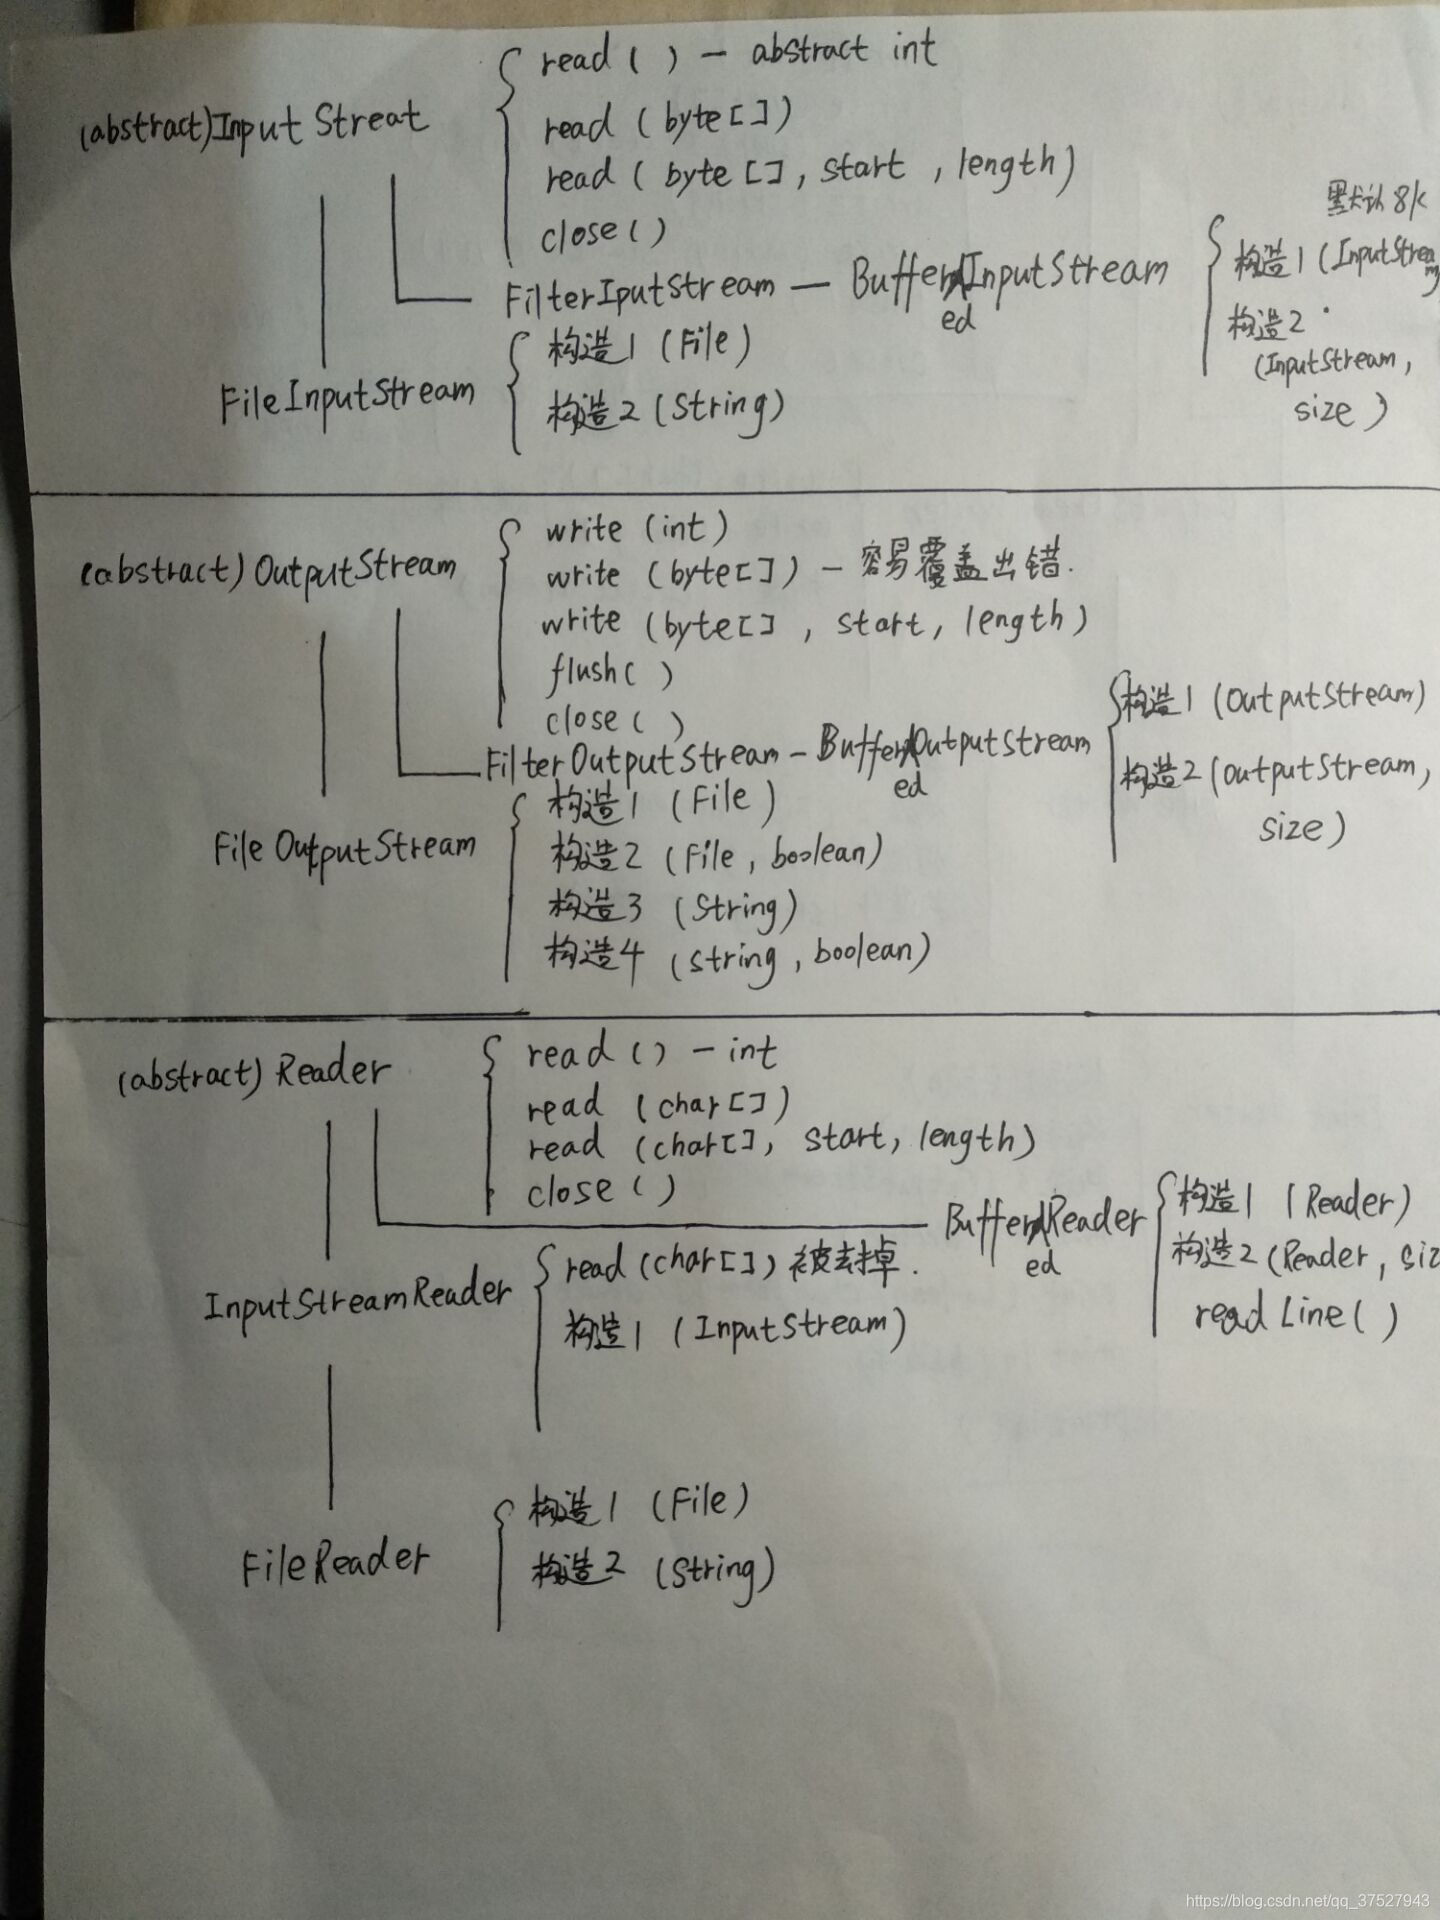 read ( ) - abstract int
(abstract)Input Streat
read ( byte[] )
read ( byte [], start , length)
close ( )
FilterIputStream — BufferedInputStream
默认 8k
构造1 (InputStream)
构造2
(InputStream,
size )
构造1 (File)
FileInputStream
构造2 (String)
write (int)
(abstract) OutputStream
write (byte[]) - 容易覆盖出错.
write (byte[] , start, length )
flush( )
close ( )
FilterOutputStream - BufferedOutputStream
构造1 (OutputStream)
构造2 (OutputStream,
size )
构造1 (File )
File OutputStream
构造2 (File , boolean)
构造3 (String)
构造4 (string , boolean)
read () - int
(abstract) Reader
read (char[])
read (char[], start, length)
close ( )
BufferedReader
构造1 (Reader)
构造2 (Reader, siz
read Line( )
read (char[]) 被去掉.
InputStreamReader
构造1 (InputStream)
构造1 (File)
FileReader
构造2 (String)
https://blog.csdn.net/qq_37527943